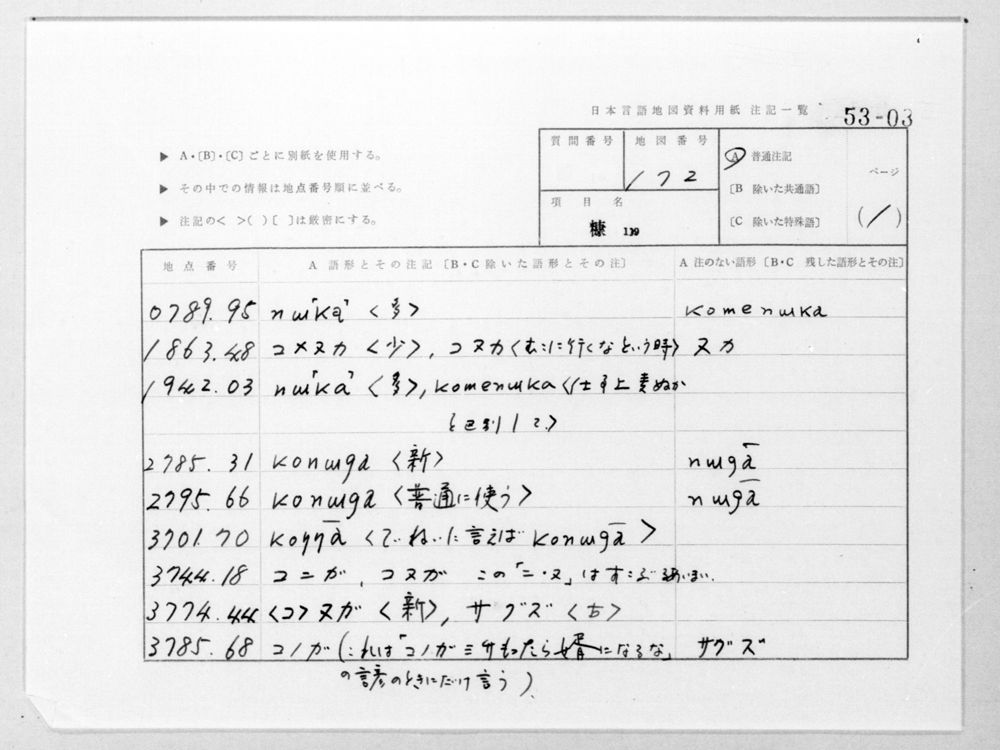 日本言語地図資料用紙 注記一覧 53-03
▶ A・〔B〕・〔C〕ごとに別紙を使用する。
▶ その中での情報は地点番号順に並べる。
▶ 注記の< >( )[ ]は厳密にする。
質問番号 地図番号 172
項目名 糠 119
A 普通注記
〔B 除いた共通語〕
〔C 除いた特殊語〕
ページ
(1)
地点番号 A 語形とその注記〔B・C 除いた語形とその注〕 A 注のない語形〔B・C 残した語形とその注〕
0789.95 nɯ「ka」 <多> komenɯka
1863.48 コメヌカ <少>, コヌカ<むこに行くなという時> ヌカ
1942.03 nɯ「ka」 <多>, komenɯka<(仕事上麦ぬか
と区別して>
2785.31 konɯga <新> nɯga̅
2795.66 konɯga <普通に使う> nɯga̅
3701.70 koŋŋa̅ <ていねいに言えば konɯga̅>
3744.18 コニガ, コヌガ この「ニ・ヌ」はすこぶるあいまい.
3774.44 <コ>ヌガ <新>, サグズ <古>
3785.68 コノガ(これは「コノガ三升もったら婿になるな」 サグズ
の諺のときにだけ言う).